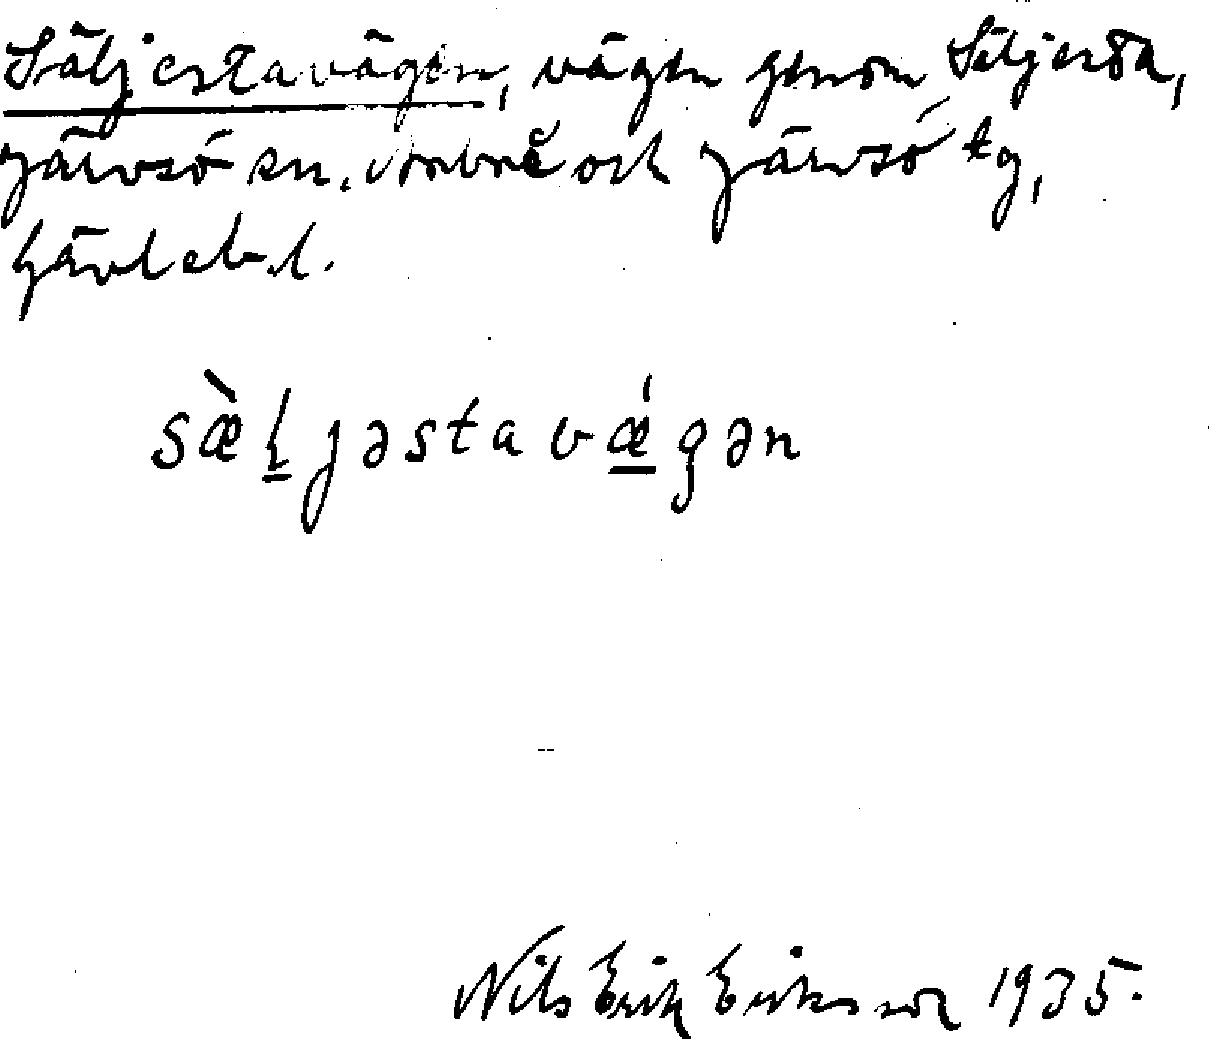 Säljestavägen, vägen genom Säljesta,
Järvsö sn. och Järvsö tg,
Gävleb. l.
sæ̀l̠jəstavǽ̠gən
Nils Erik Eriksson 1935.